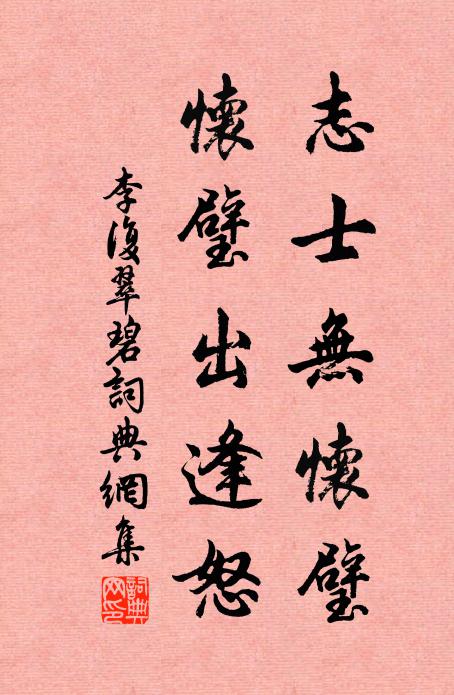 志士無懷璧
懷璧出逢怒
李復翠碧詞典網集
詞典網印